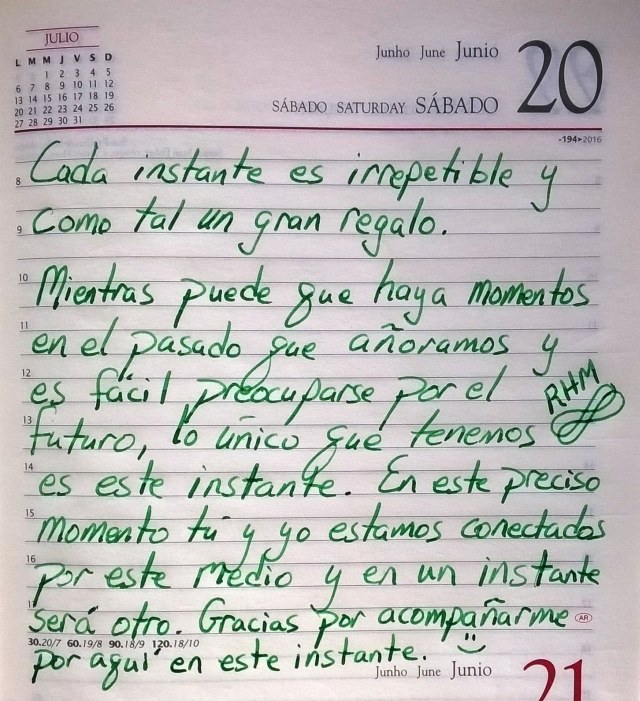 JULIO
L M M J V S D
1 2 3 4 5
6 7 8 9 10 11 12
13 14 15 16 17 18 19
20 21 22 23 24 25 26
27 28 29 30 31
Junho June Junio
20
SÁBADO SATURDAY SÁBADO
-194▸2016
8 Cada instante es irrepetible y
9 como tal un gran regalo.
10 Mientras puede que haya momentos
11 en el pasado que añoramos y
12 es fácil preocuparse por el
RHM
13 futuro, lo único que tenemos
14 es este instante. En este preciso
15 momento tú y yo estamos conectados
16 por este medio y en un instante
será otro. Gracias por acompañarme
AR
30.20/7 60.19/8 90.18/9 120.18/10
por aquí en este instante.
Junho June Junio
21